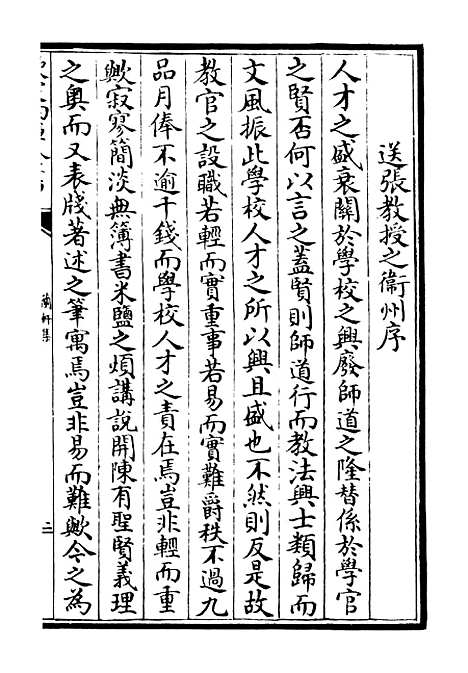 送張教授之衢州序
人才之盛衰關於學校之興廢師道之隆替係於學官
之賢否何以言之蓋賢則師道行而教法興士類歸而
文風振此學校人才之所以興且盛也不然則反是故
教官之設職若輕而實重事若易而實難爵秩不過九
品月俸不逾千錢而學校人才之責在焉豈非輕而重
歟寂寥簡淡無簿書米鹽之煩講說開陳有聖賢義理
之奧而又表牋著述之筆寓焉豈非易而難歟今之為
蘭軒集
二